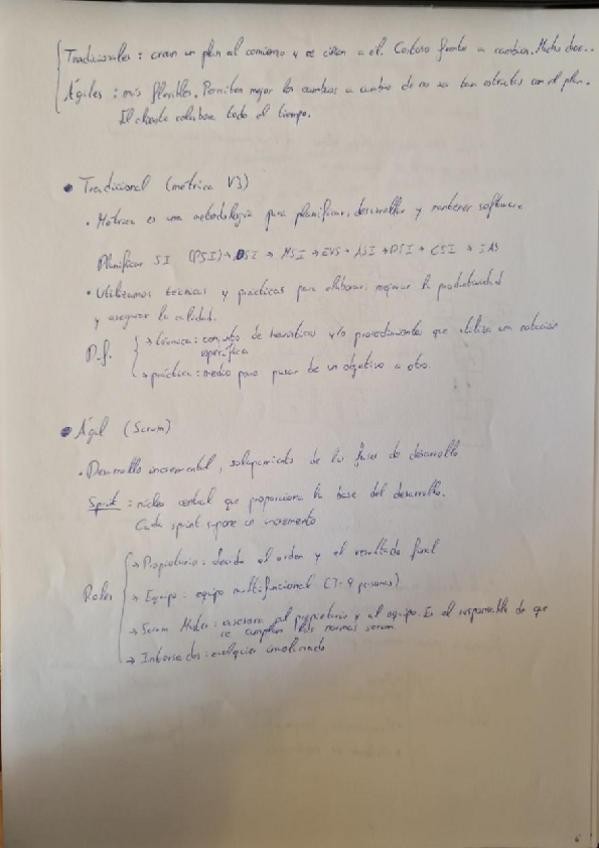 Tradicionales: crean un plan al comienzo y se ciñen a él. Costoso frente a cambios. Mucha doc..
Ágiles: más flexibles. Permiten mejor los cambios a cambio de no ser tan estrictos con el plan.
El cliente colabora todo el tiempo.
• Tradicional (métrica V3)
• Métrica es una metodología para planificar, desarrollar y mantener software
Planificar SI (PSI) → DSI → MSI → EVS → ASI → DSI → CSI → IAS
• Utilizamos técnicas y prácticas para elaborar, mejorar la productividad
y asegurar la calidad.
Def. → técnica: conjunto de heurísticas y/o procedimientos que utiliza una notación
específica
→ práctica: medio para pasar de un objetivo a otro.
• Ágil (Scrum)
• Desarrollo incremental, solapamiento de las fases de desarrollo
Sprint: núcleo central que proporciona la base del desarrollo.
Cada sprint supone un incremento
Roles → Propietario: decide el orden y el resultado final
→ Equipo: equipo multifuncional (7-9 personas)
→ Scrum Master: asesora al propietario y al equipo. Es el responsable de que
se cumplan las normas scrum.
→ Interesados: cualquier involucrado